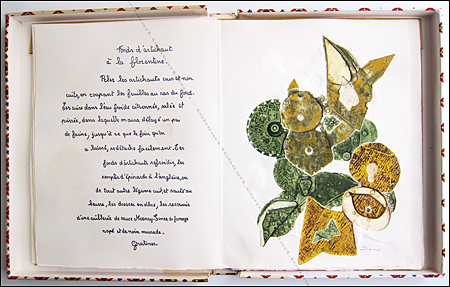 Fonds d'artichaut
à la florentine.
Peler les artichauts crus et non
cuits, en coupant les feuilles au ras du fond.
Les cuire dans l'eau froide citronnée, salée et
poivrée, dans laquelle on aura délayé un peu
de farine, jusqu'à ce que le foin qu'on
a laissé, se détache facilement. Ces
fonds d'artichauts refroidis, les
remplir d'épinards à l'anglaise, ou
de tout autre légume cuit et sauté au
beurre, les dresser en dôme, les recouvrir
d'une cuillerée de sauce Mornay. Semez de fromage
rapé et de noix muscade.
Gratiner.